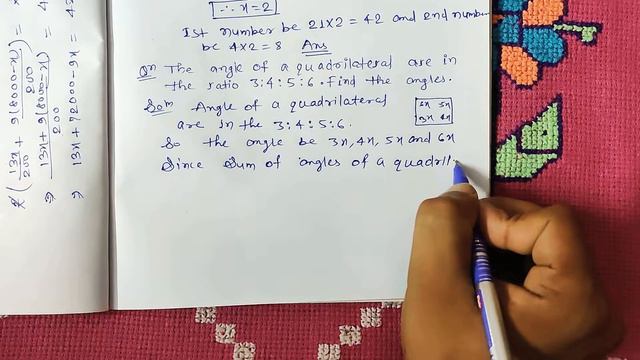 ∴ x = 2
Ist number be 21×2 = 42 and 2nd number
be 4×2 = 8 Ans
Qn The angle of a quadrilateral are in
the ratio 3:4:5:6. Find the angles.
Soln Angle of a quadrilateral
are in the 3:4:5:6.
So the angle be 3x, 4x, 5x and 6x
Since Sum of angles of a quadril
6x 5x
3x 4x
(13x/200 + 9(8000-x)/200) =
⇒ 13x + 9(8000-x)/200 = 4
⇒ 13x + 72000 - 9x = 4